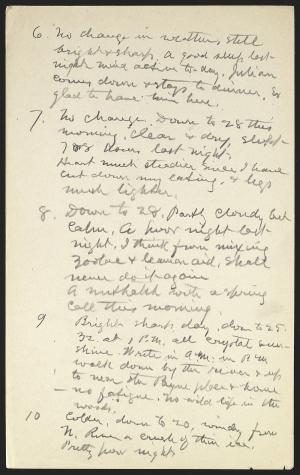 6. No change in weather, still
bright & sharp. A good sleep last
night mind active to-day. Julian
comes down & stays to dinner. So
glad to have him here.
7. No change. Down to 28 this
morning. Clear & dry, slept
7 or 8 hours last night.
Heart much steadier since I have
cut down my eating, & legs
much lighter.
8. Down to 28, Partly cloudy but
calm, A poor night last
night, I think from mixing
& lemon aid, Shall
never do it again
A nuthatch with a spring
call this morning.
9 Bright sharp day, down to 25.
32 at 1 P.M. all crystal sun-
shine. Write in a.m. in P.M
walk down by the river & up
to near the Payne place & home
— no fatigue. No wild life in the
woods.
10 Colder, down to 20, windy from
N. River a crush of thin ice.
Pretty poor night